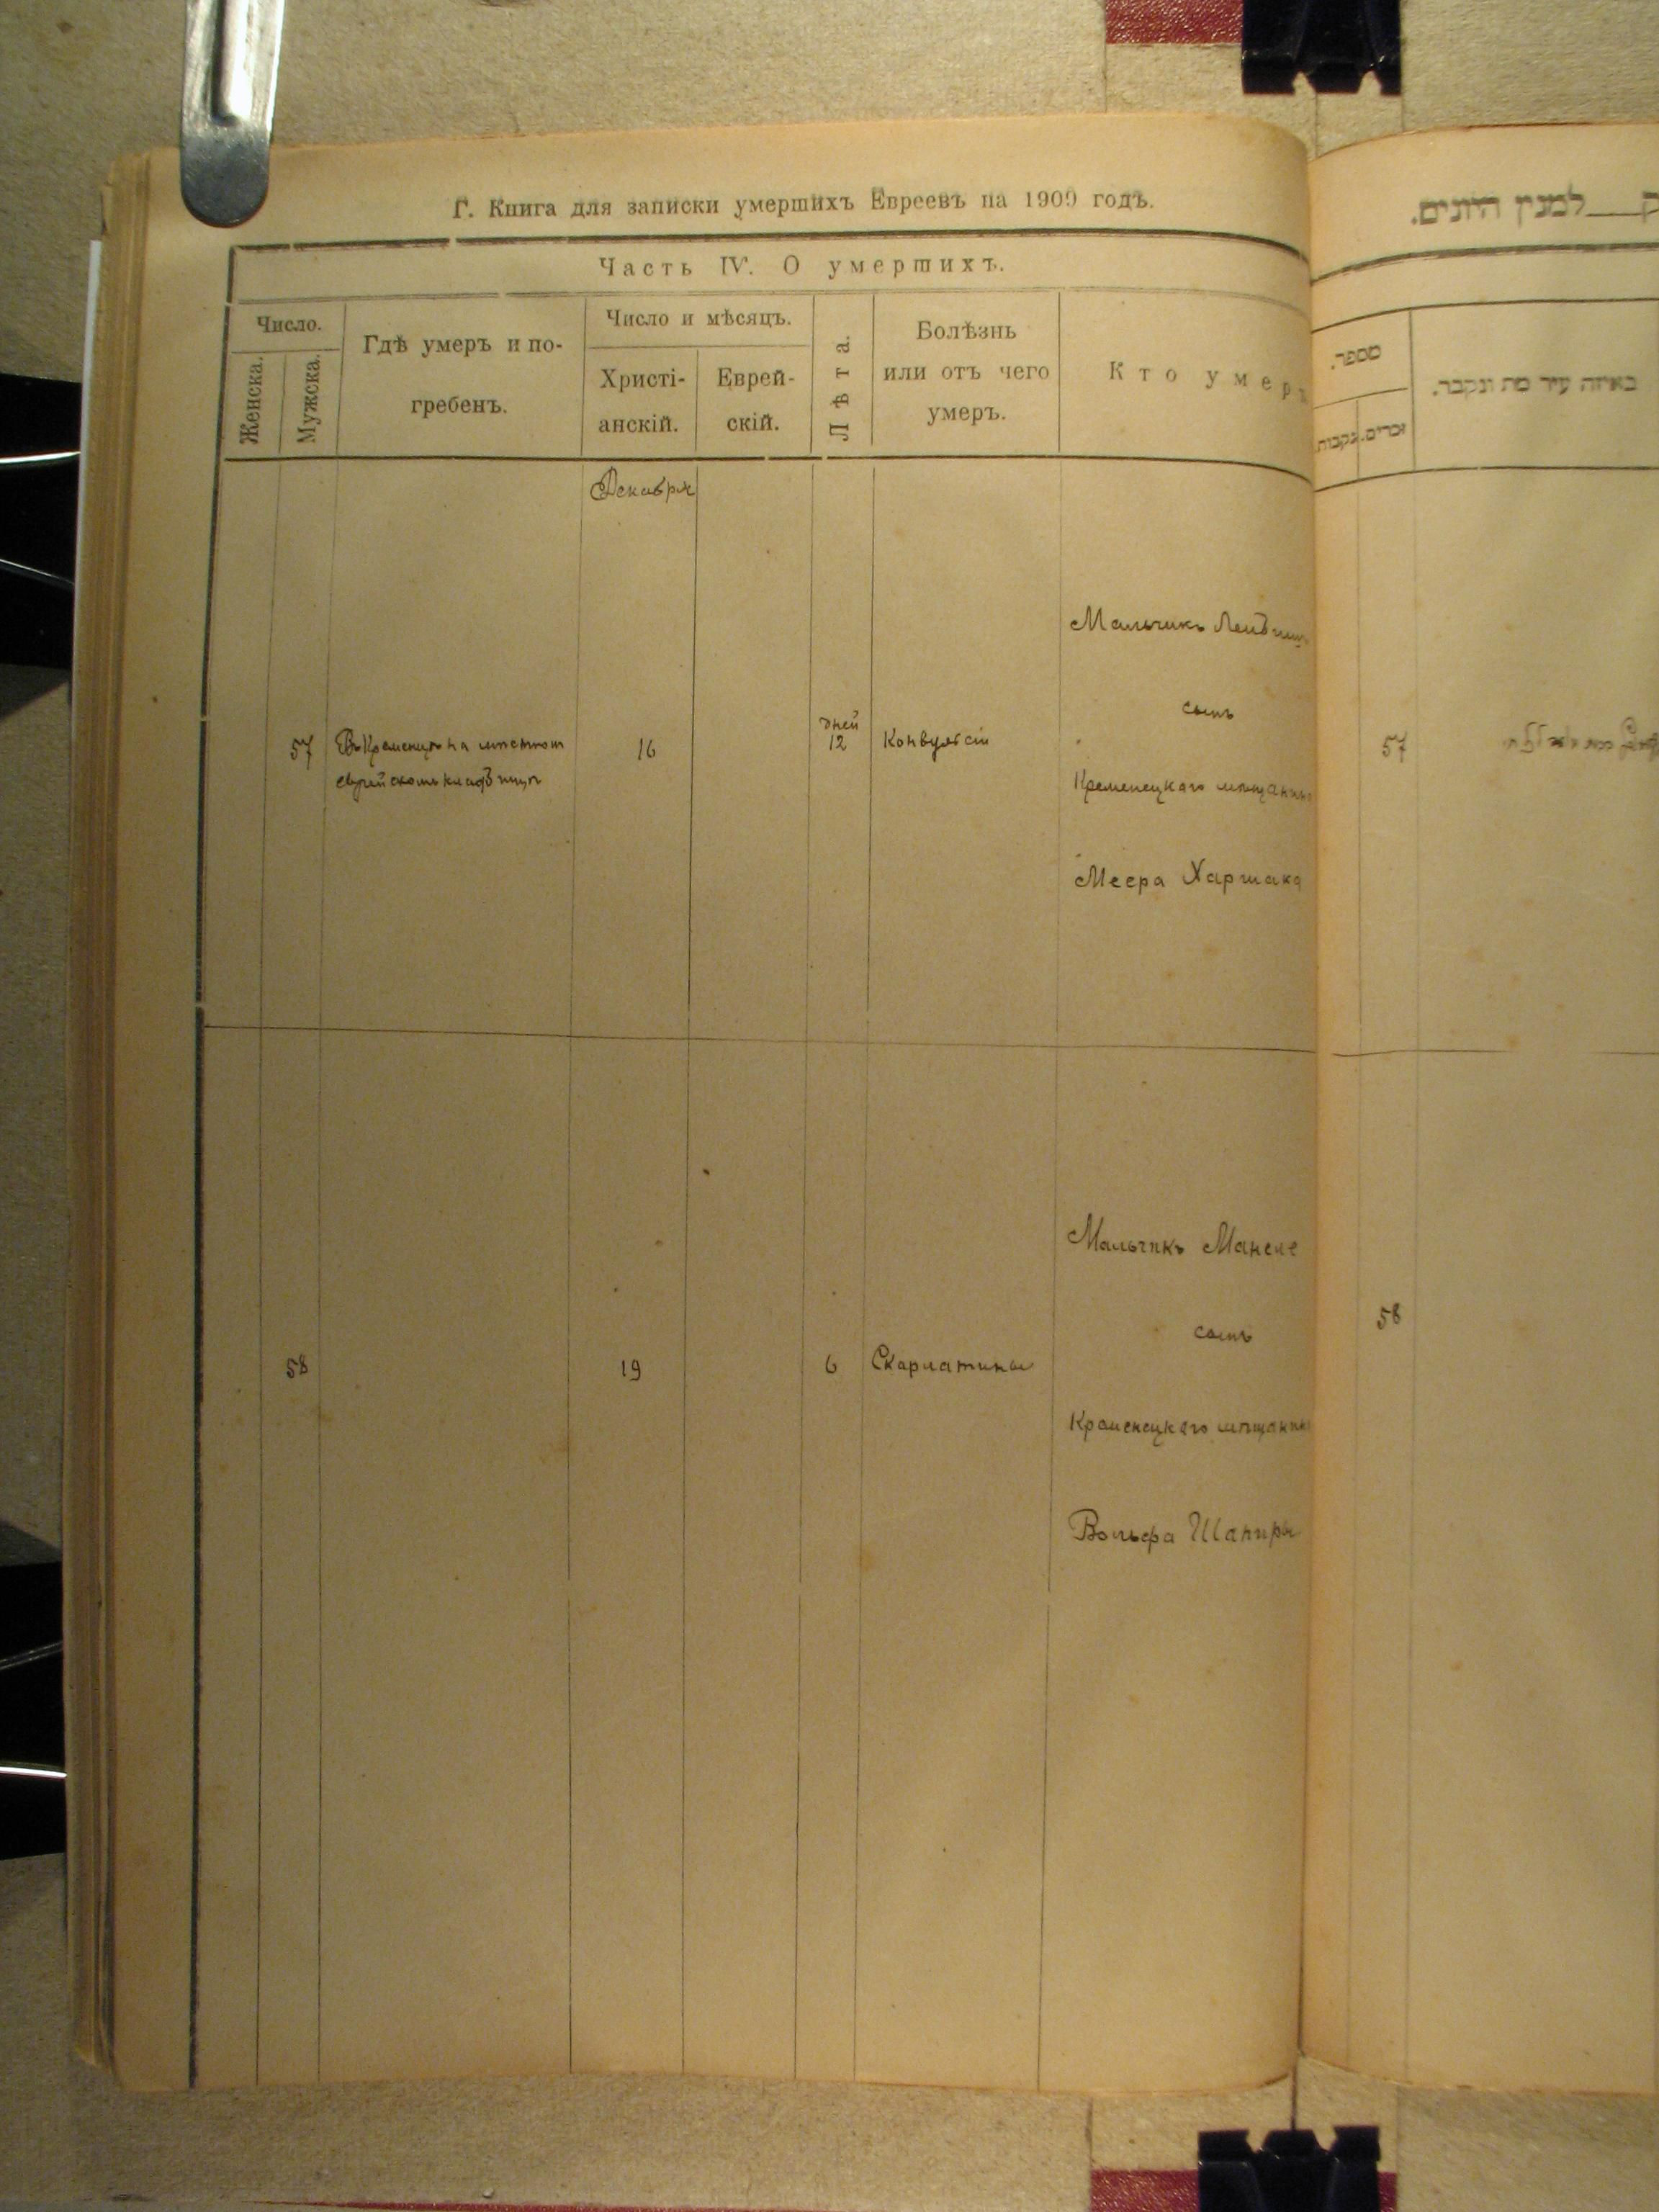 Г. Книга для записки умершихъ Евреевъ на 1909 годъ.
Часть IV. О умершихъ.
Число.
Женска.
Мужска.
Гдѣ умеръ и по-
гребенъ.
Число и мѣсяцъ.
Христі-
анскій.
Еврей-
скій.
Лѣта.
Болѣзнь
или отъ чего
умеръ.
Кто умеръ
Декабря
57
Въ Кременцѣ на мѣстном
еврейскомъ кладбищѣ
16
дней
12
Конвульсіи
Мальчикъ
сынъ
Кременецкого мѣщанина
Меера Харшака
58
19
6
Скарлатины
Мальчикъ
сынъ
Кременецкого мѣщанина
Вольфа Шапиры
למנין היונים.
מספר.
זכרים.
נקבות
באיזה עיר מת ונקבר.
57
58